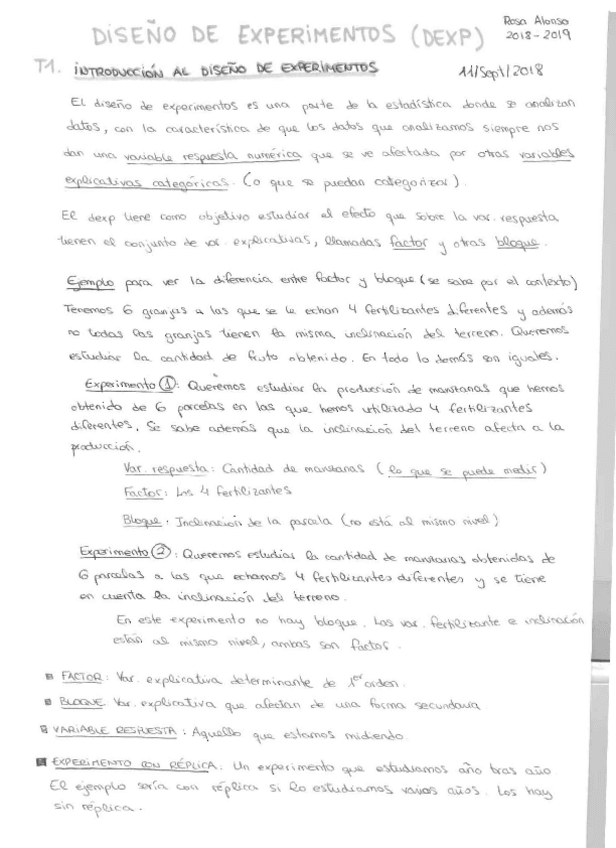 DISEÑO DE EXPERIMENTOS (DEXP)
Rosa Alonso
2018-2019
T1. INTRODUCCIÓN AL DISEÑO DE EXPERIMENTOS
11/Sept/2018
El diseño de experimentos es una parte de la estadística donde se analizan
datos, con la característica de que los datos que analizamos siempre nos
dan una variable respuesta numérica que se ve afectada por otras variables
explicativas categóricas. (o que se puedan categorizar).
El dexp tiene como objetivo estudiar el efecto que sobre la var. respuesta
tienen el conjunto de var. explicativas, llamadas factor y otras bloque.
Ejemplo para ver la diferencia entre factor y bloque (se sabe por el contexto)
Tenemos 6 granjas a las que se le echan 4 fertilizantes diferentes y además
no todas las granjas tienen la misma inclinación del terreno. Queremos
estudiar la cantidad de fruto obtenido. En todo lo demás son iguales.
Experimento ①: Queremos estudiar la producción de manzanas que hemos
obtenido de 6 parcelas en las que hemos utilizado 4 fertilizantes
diferentes. Se sabe además que la inclinación del terreno afecta a la
producción.
Var. respuesta: Cantidad de manzanas (lo que se puede medir)
Factor: Los 4 fertilizantes
Bloque: Inclinación de la parcela (no está al mismo nivel)
Experimento ②: Queremos estudiar la cantidad de manzanas obtenidas de
6 parcelas a las que echamos 4 fertilizantes diferentes y se tiene
en cuenta la inclinación del terreno.
En este experimento no hay bloque. Las var. fertilizante e inclinación
están al mismo nivel, ambas son factor.
FACTOR: Var. explicativa determinante de 1er orden.
BLOQUE. Var. explicativa que afectan de una forma secundaria
VARIABLE RESPUESTA: Aquello que estamos midiendo.
EXPERIMENTO CON RÉPLICA: Un experimento que estudiamos año tras año.
El ejemplo sería con réplica si lo estudiamos varios años. Los hay
sin réplica.